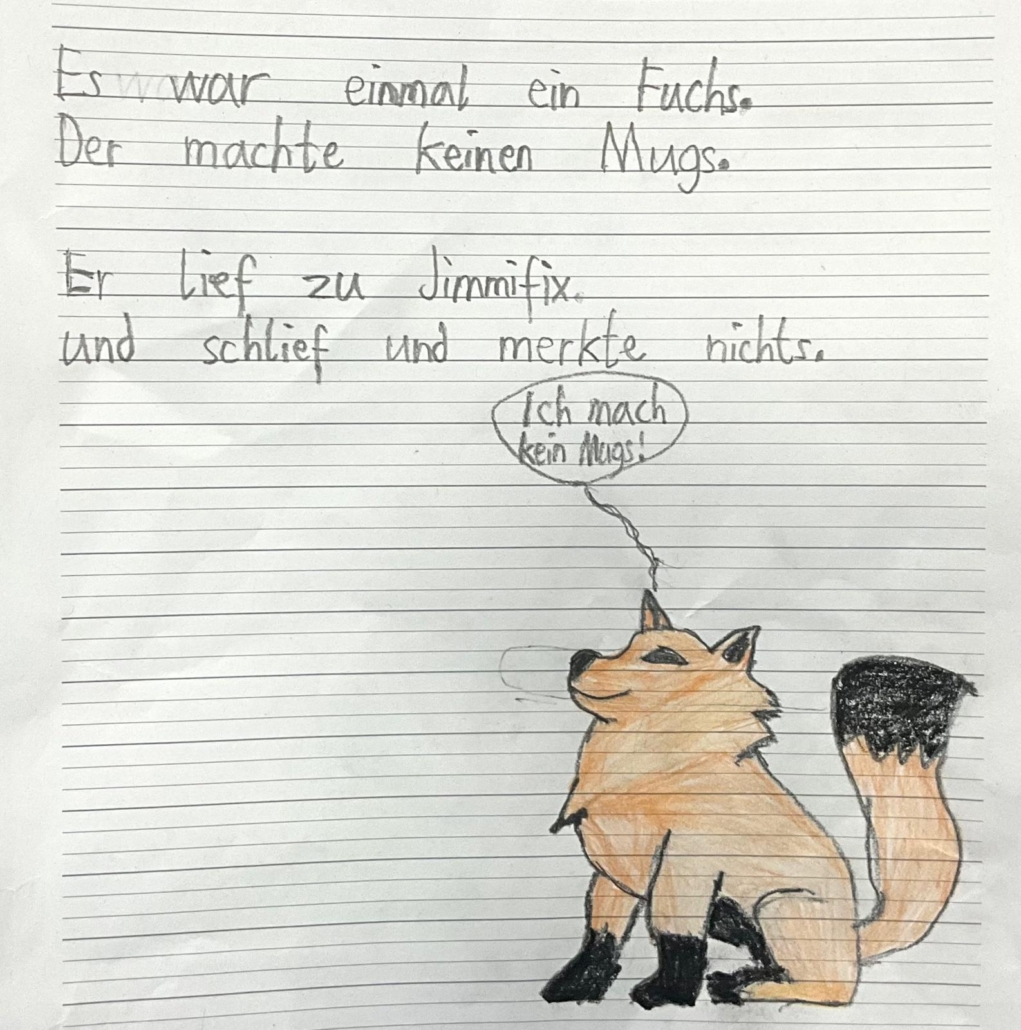 Es war einmal ein Fuchs.
Der machte keinen Mugs.
Er lief zu Jimmifix.
und schlief und merkte nichts.
Ich mach
kein Mugs!